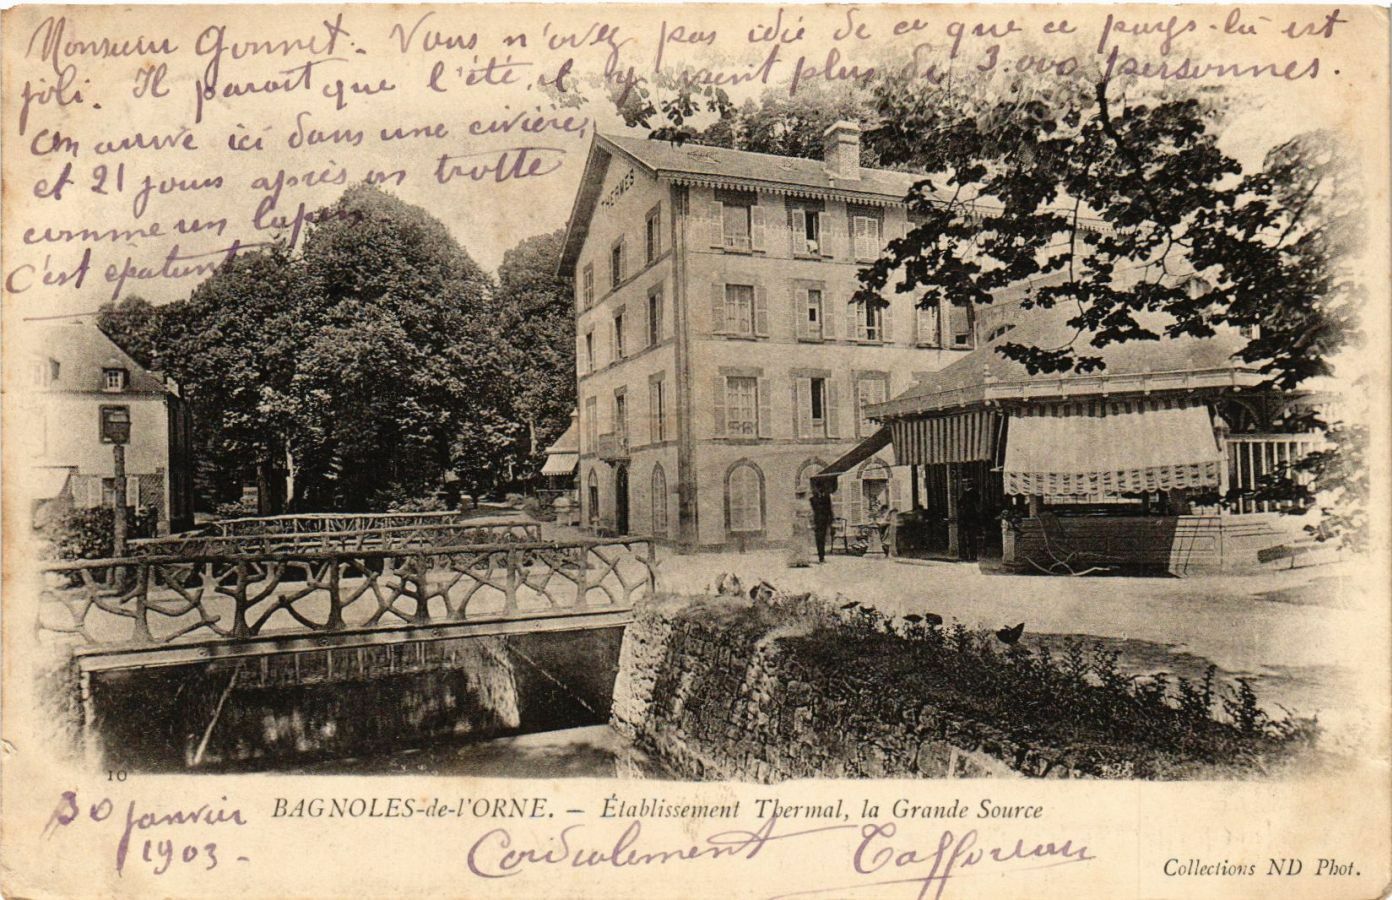 Monsieur Gonnet. Vous n'avez pas idée de ce que ce pays-là est
joli. Il parait que l'été, il y vient plus de 3.000 personnes.
On arrive ici dans une civière,
et 21 jours après on trotte
comme un lapin
C'est épatant
THERMES
10
30 janvier
1903 -
BAGNOLES-de-l'ORNE. — Établissement Thermal, la Grande Source
Cordialement
Collections ND Phot.